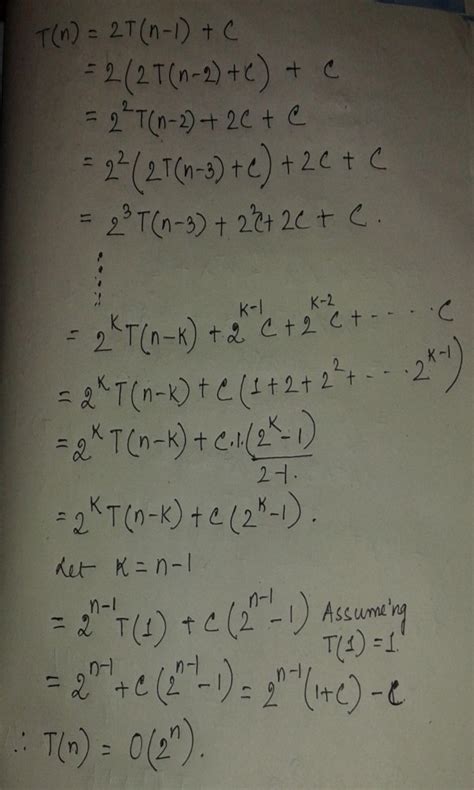 T(n) = 2T(n-1) + C
= 2(2T(n-2)+C) + C
= 2²T(n-2) + 2C + C
= 2²(2T(n-3)+C) + 2C + C
= 2³T(n-3) + 2²C + 2C + C.
= 2^K T(n-K) + 2^(K-1) C + 2^(K-2) C + - - - - C
= 2^K T(n-K) + C(1+2+2²+ - - - 2^(K-1))
= 2^K T(n-K) + C.1.(2^K-1)/2-1.
= 2^K T(n-K) + C(2^K-1).
Let K = n-1
= 2^(n-1) T(1) + C(2^(n-1)-1) Assume'ng T(1)=1.
= 2^(n-1) + C(2^(n-1)-1) = 2^(n-1)(1+C) - C
∴ T(n) = O(2^n).